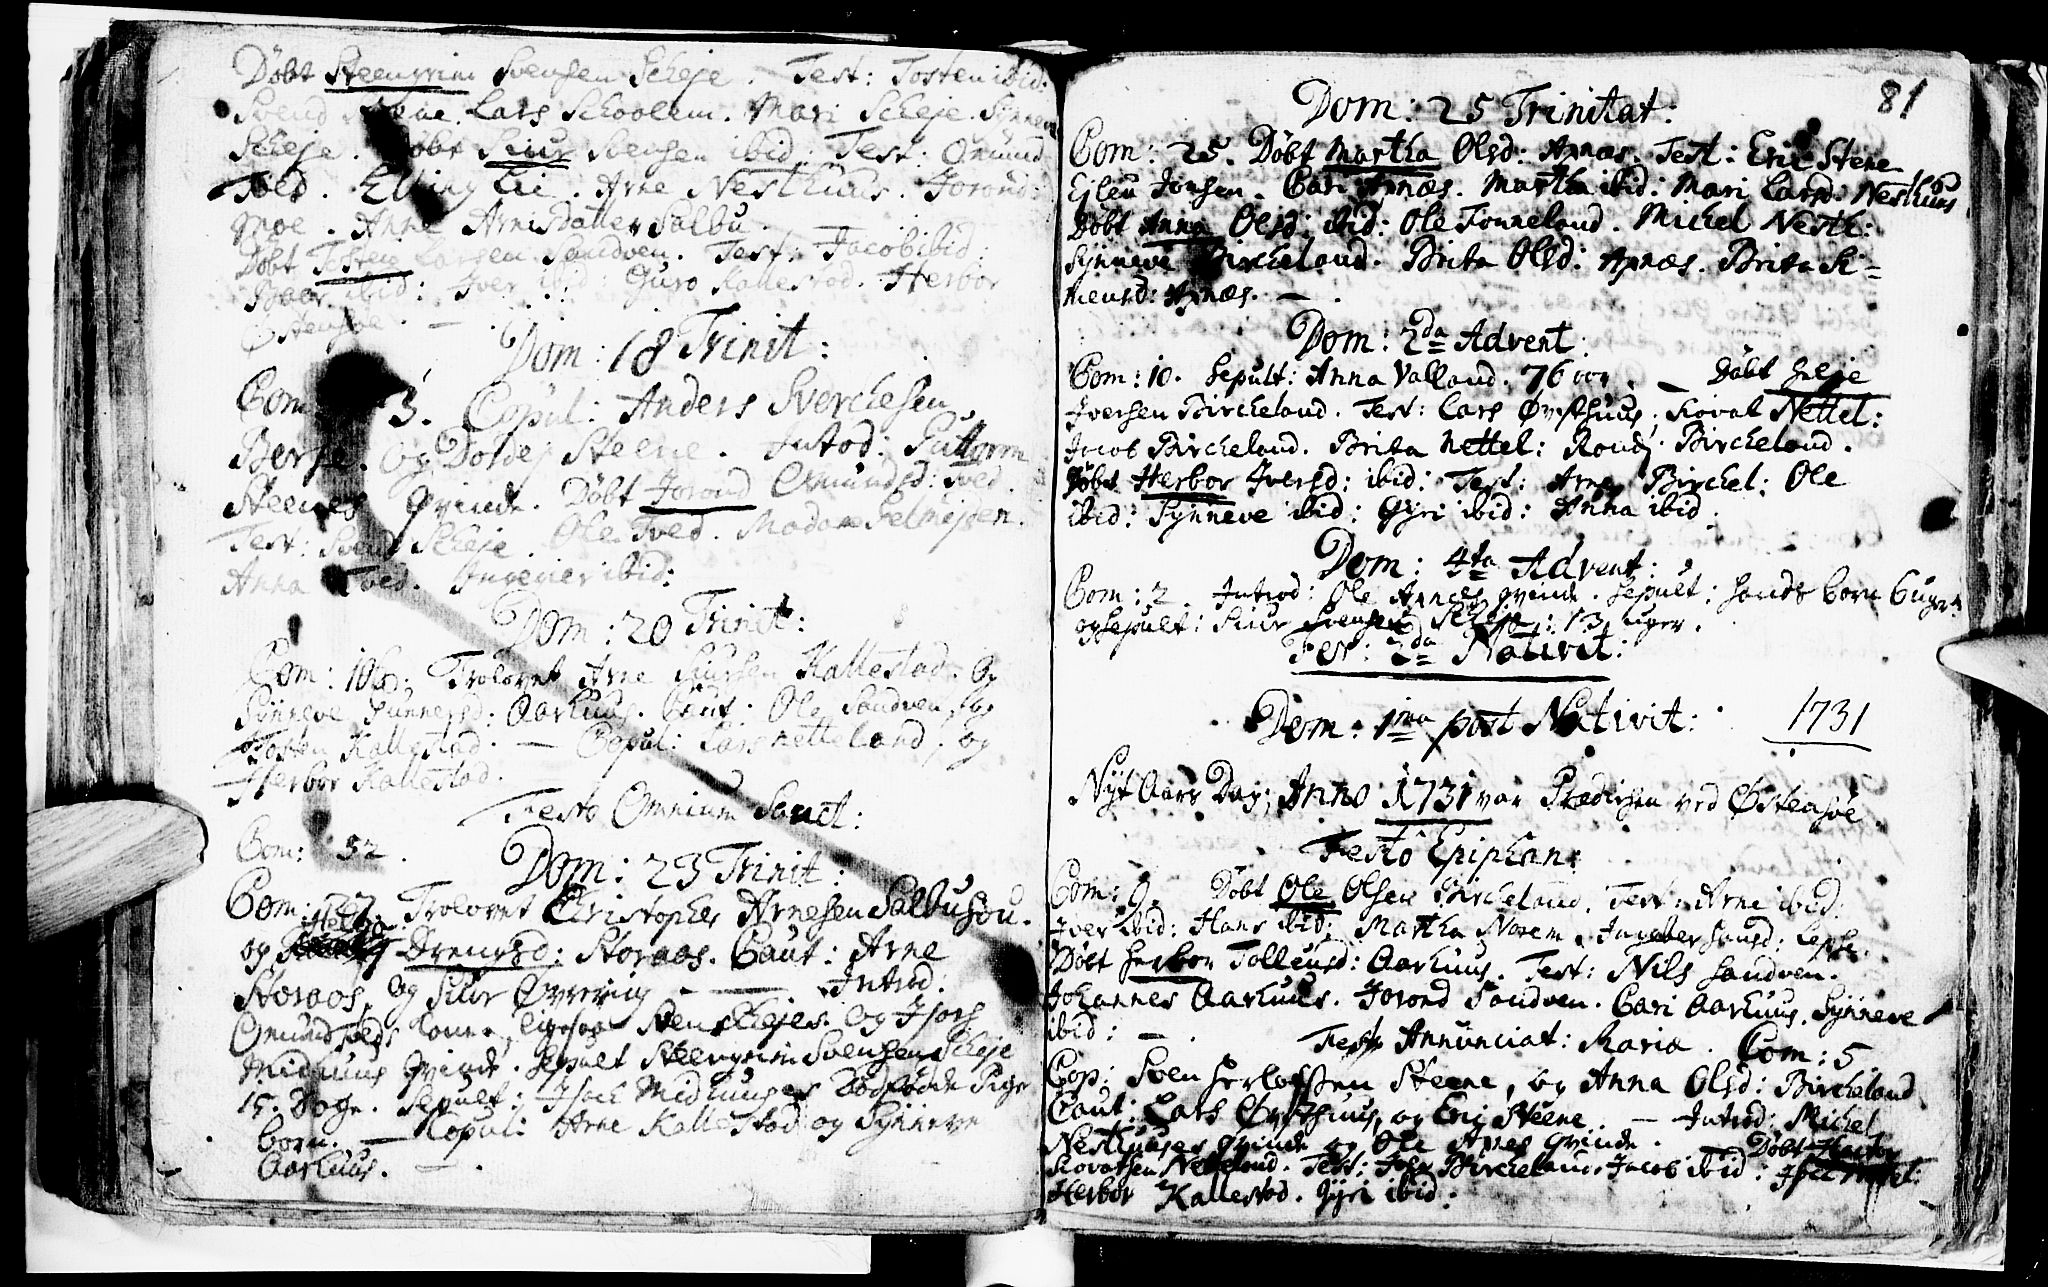 Døbt Steengrim Svensen Scheje. Test: Tosten ibid:
Svend Lars Schoolem. Mari Scheje. Synneve
Scheje. Døbt Siur Svensen ibid: Test: Omund
Tved. Elling Lie. Arne Nesthuus. Jorond:
Moe. Anne Arnesdatter Salbu.
Døbt Tosten Larsen Sandven. Test: Jacob ibid:
ibid: Iver ibid: Guro Kallestad. Herbor
Østensøe. —
Dom: 18 Trinit:
Com 3. Copul: Anders Sverchesen
Berje. og Dordej Steene. Introd: Guttorm
Steenes Qvinde. Døbt Jorond Omundsd: Tved.
Test: Svend Scheje. Ole Tved. Madame
Anna Tved. ibid:
Dom: 20 Trinit:
Com: 106. Trolovet Arne Siursen Kallestad. og
Synneve Gunnersd: Aarhuus. Caut: Ole Sandven, og
Tosten Kallestad. — Copul: Lars Netteland, og
Herbor Kallestad.
Festo Omnium Sanct:
Com: 52.
Dom: 23 Trinit:
Com: Trolovet Christopher Arnesen Salbu
og Helga Orensd: Storaas. Caut: Arne
Storaas, og Siur — Introd:
Omund Tveds Kone, ligesaa Svens Schejes og Isach
Midhuus Qvinde. Sepult Steengrim Svensen Scheje
15 Dage. Sepult: Isach Midhuuses Dødfødde Pige
barn. — Copul: Arne Kallestad og Synneve
Aarhuus. —
81
Dom: 25 Trinitat:
Com: 25. Døbt Martha Olsd: Axnæs. Test: Eric Stene
Ejlev Jonsen. Cari Axnæs. Martha ibid: Mari Larsd: Nesthuus
Døbt Anna Olsd: ibid: Ole Tonneland. Michel Nesth:
Synneve Bircheland. Brita Olsd: Axnæs. Brita Si=
mensd: Axnæs. —
Dom: 2da Advent:
Com: 10. Sepult: Anna Valland. 76 aar. — Døbt Helje
Iversen Bircheland. Test: Lars Øvsthuus, Siovat Nettel:
Jacob Bircheland. Brita Nettel: Bircheland.
Døbt Herbor Iversd: ibid: Test: Arne Birchel: Ole
ibid: Synneve ibid: Gyri ibid: Anna ibid.
Dom: 4ta Advent:
Com: 2. Introd: Ole Axnæs Qvinde. Sepult: hands barn 6 uger.
og Sepult: Siur Svensen Scheje: 13 uger.
Fer: 2da Nativit:
Dom: 1ma post Nativit: 1731
Nyt Aars Dag, Anno 1731 var Prædichen ved Østensøe.
Festo Epiphan:
Com: 9. Døbt Ole Olsen Bircheland. Test: Arne ibid:
Iver ibid: Hans ibid: Martha Norem. Ingebor
Døbt Herbor Tollevsd: Aarhuus. Test: Nils Sandven.
Johannes Aarhuus. Jorond Sandven. Cari Aarhuus. Synneve
ibid: —
Festo Annunciat: Maria. Com: 5
Cop: Sven Steene, og Anna Olsd: Bircheland
Caut: Lars Øvsthuus, og Eric Steene. — Introd: Michel
Nesthuuses Qvinde og Ole Axnes Qvinde. Døbt
Siovatsen Netteland. Test: Bircheland. Jacob ibid:
Herbor Kallestad. Gyri ibid: